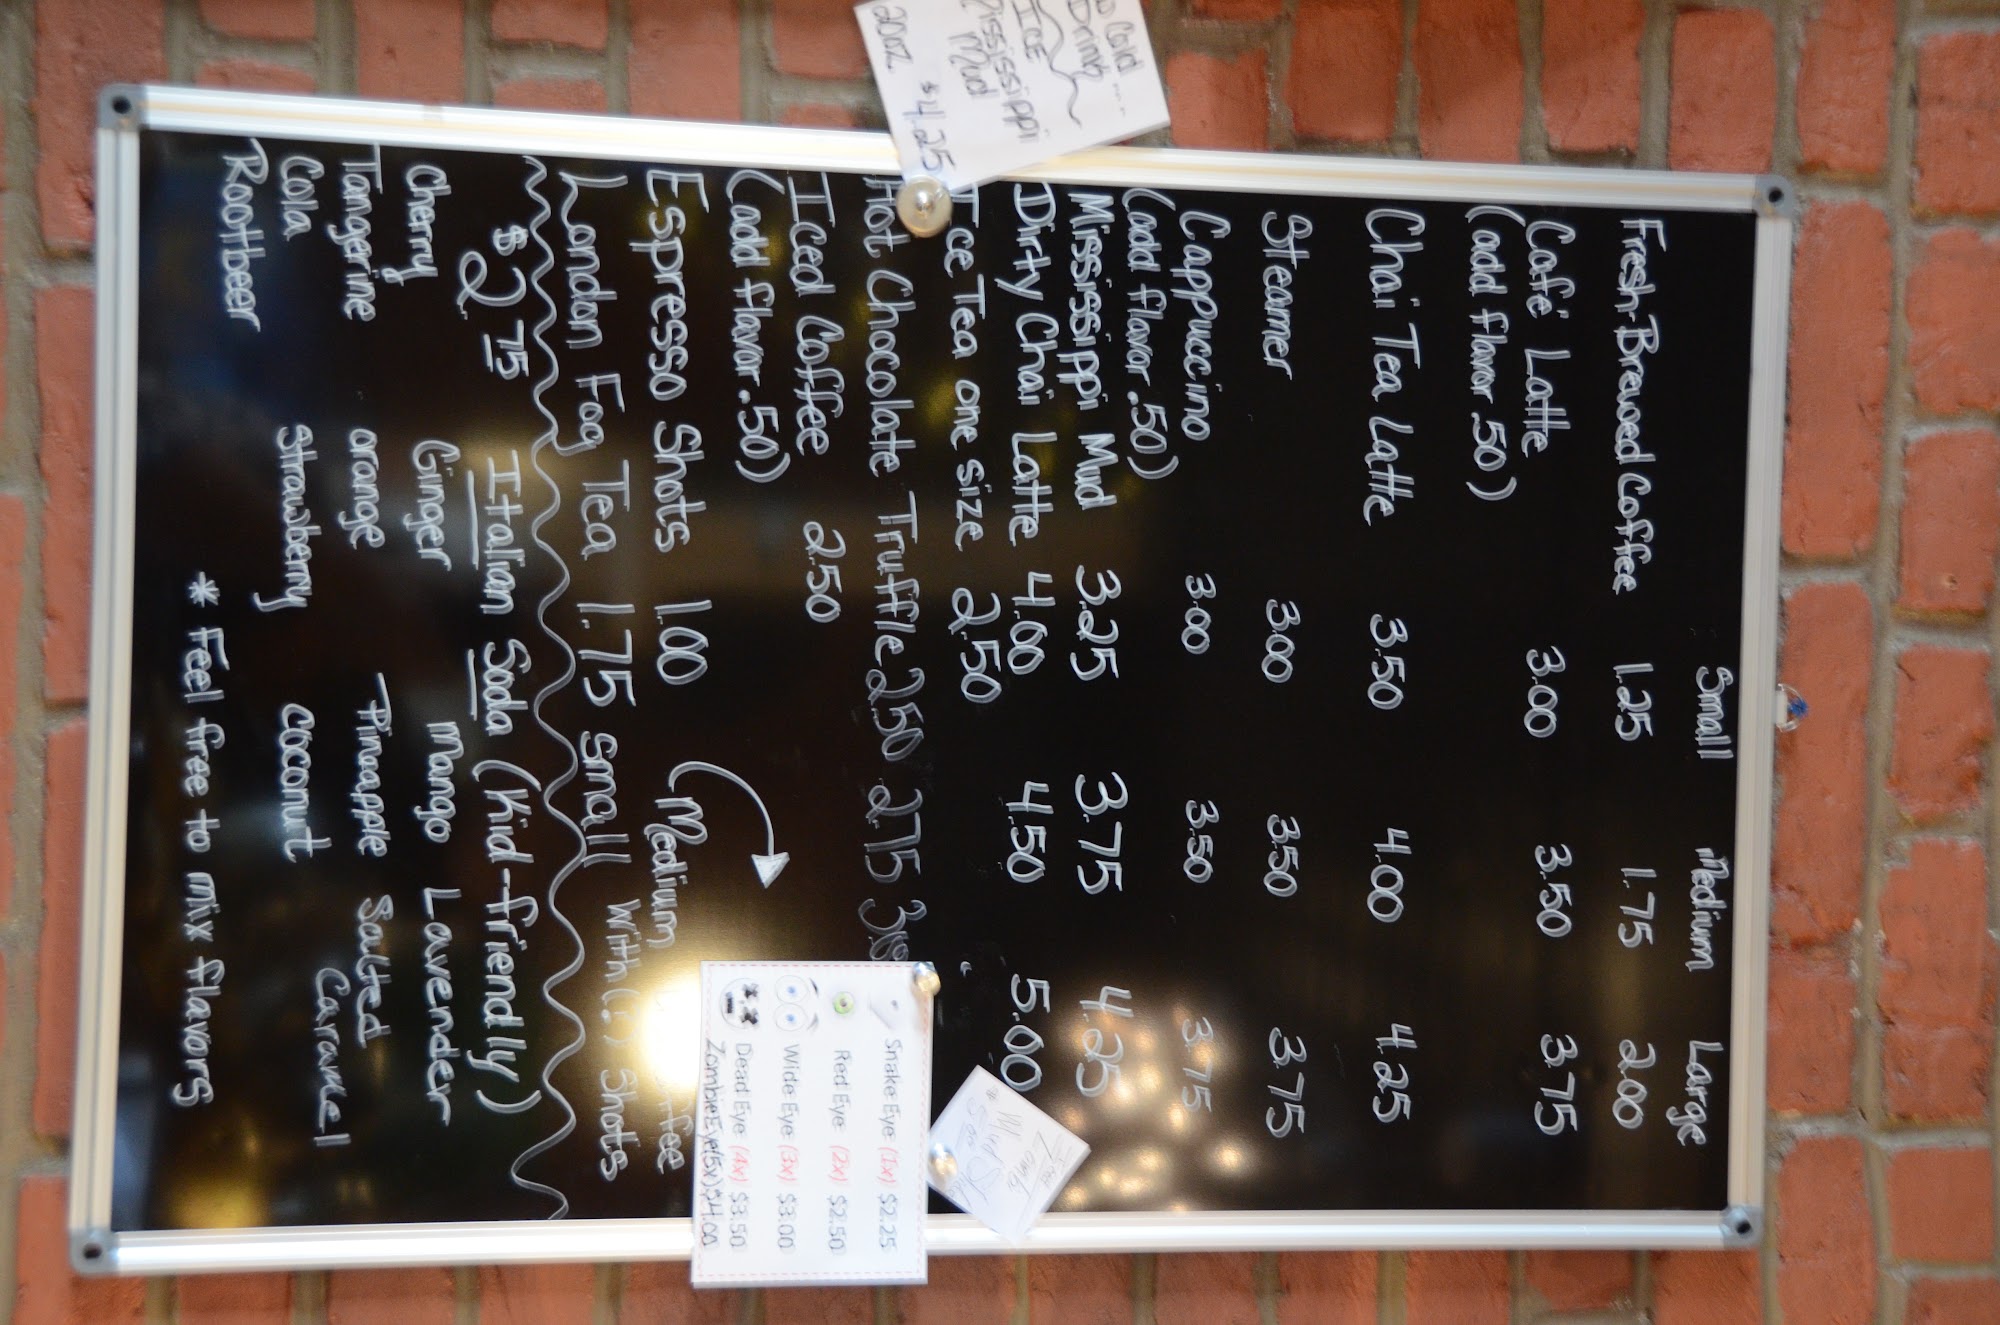 Cold
Drink ...
ICE
Mississippi
Mud
20oz $4.25
Small Medium Large
Fresh-Brewed Coffee 1.25 1.75 2.00
Café Latte 3.00 3.50 3.75
(add flavor .50)
Chai Tea Latte 3.50 4.00 4.25
Steamer 3.00 3.50 3.75
Cappuccino 3.00 3.50 3.75
(add flavor .50)
Mississippi Mud 3.25 3.75 4.25
Dirty Chai Latte 4.00 4.50 5.00
Ice Tea one size 2.50
Hot Chocolate Truffle 2.50 2.75
Iced Coffee 2.50
(add flavor .50)
Espresso Shots 1.00 (Medium
London Fog Tea 1.75 small with ( ) Shots
$2.75 Italian Soda (Kid-friendly)
Cherry Ginger Mango Lavender
Tangerine orange Pineapple Salted Caramel
Cola Strawberry Coconut
Rootbeer
* Feel free to mix flavors
Snake Eye (1x) $2.25
Red Eye (2x) $2.50
Wide Eye (3x) $3.00
Dead Eye (4x) $3.50
Zombie Eye (5x) $4.00
Mud